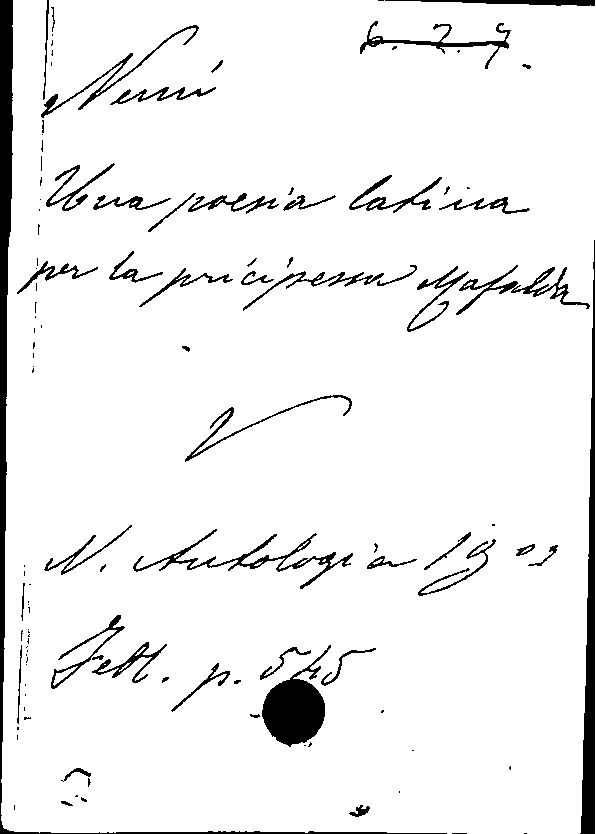 6. 2. 9.
Nemi
Una poesia latina
per la pricipessa Mafalda
V
N. Antologia 1903
Febb. p. 545